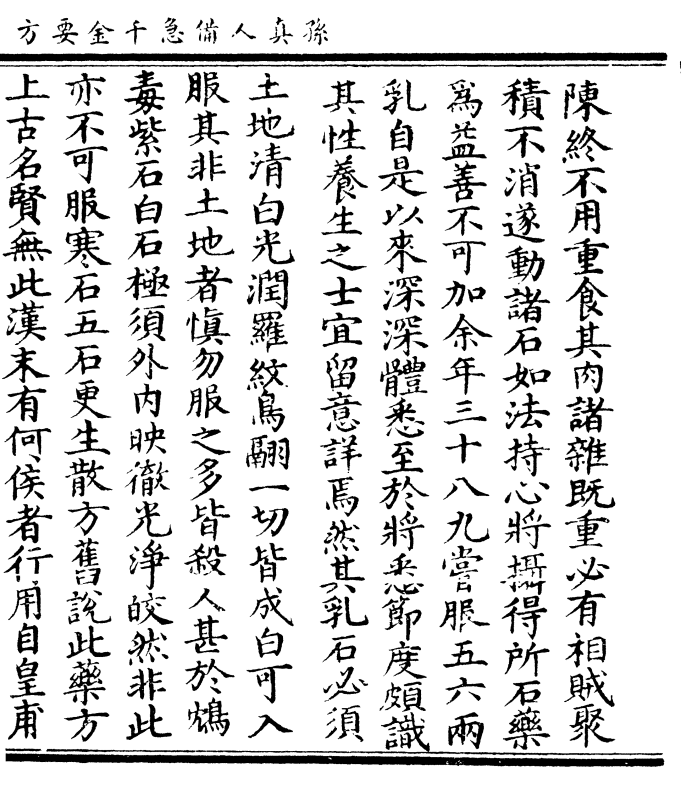 孫真人備急千金要方
陳終不用重食其肉諸雜既重必有相賊聚
積不消遂動諸石如法持心將攝得所石藥
爲益善不可加余年三十八九嘗服五六兩
乳自是以來深深體悉至於將息節度頗識
其性養生之士宜留意詳焉然其乳石必須
土地清白光潤羅紋鳥翮一切皆成白可入
服其非土地者慎勿服之多皆殺人甚於鴆
毒紫石白石極須外內映徹光淨皎然非此
亦不可服寒石五石更生散方舊說此藥方
上古名賢無此漢末有何侯者行用自皇甫